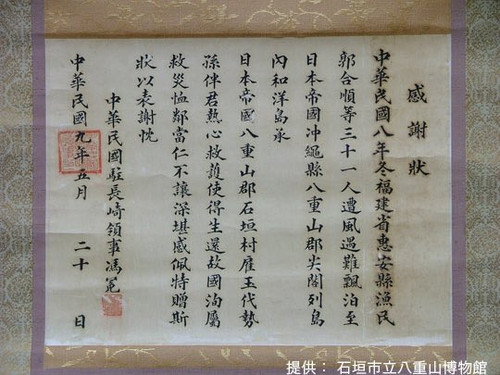 感謝狀
中華民國八年冬福建省惠安縣漁民
郭合順等三十一人遭風遇難飄泊至
日本帝國冲繩縣八重山郡尖閣列島
內和洋島承
日本帝國八重山郡石垣村雇玉代勢
孫伴君熱心救護使得生還故國洵屬
救災恤鄰當仁不讓深堪感佩特贈斯
狀以表謝忱
中華民國駐長崎領事馮冕
中華民國九年五月 二十 日
提供： 石垣市立八重山博物館